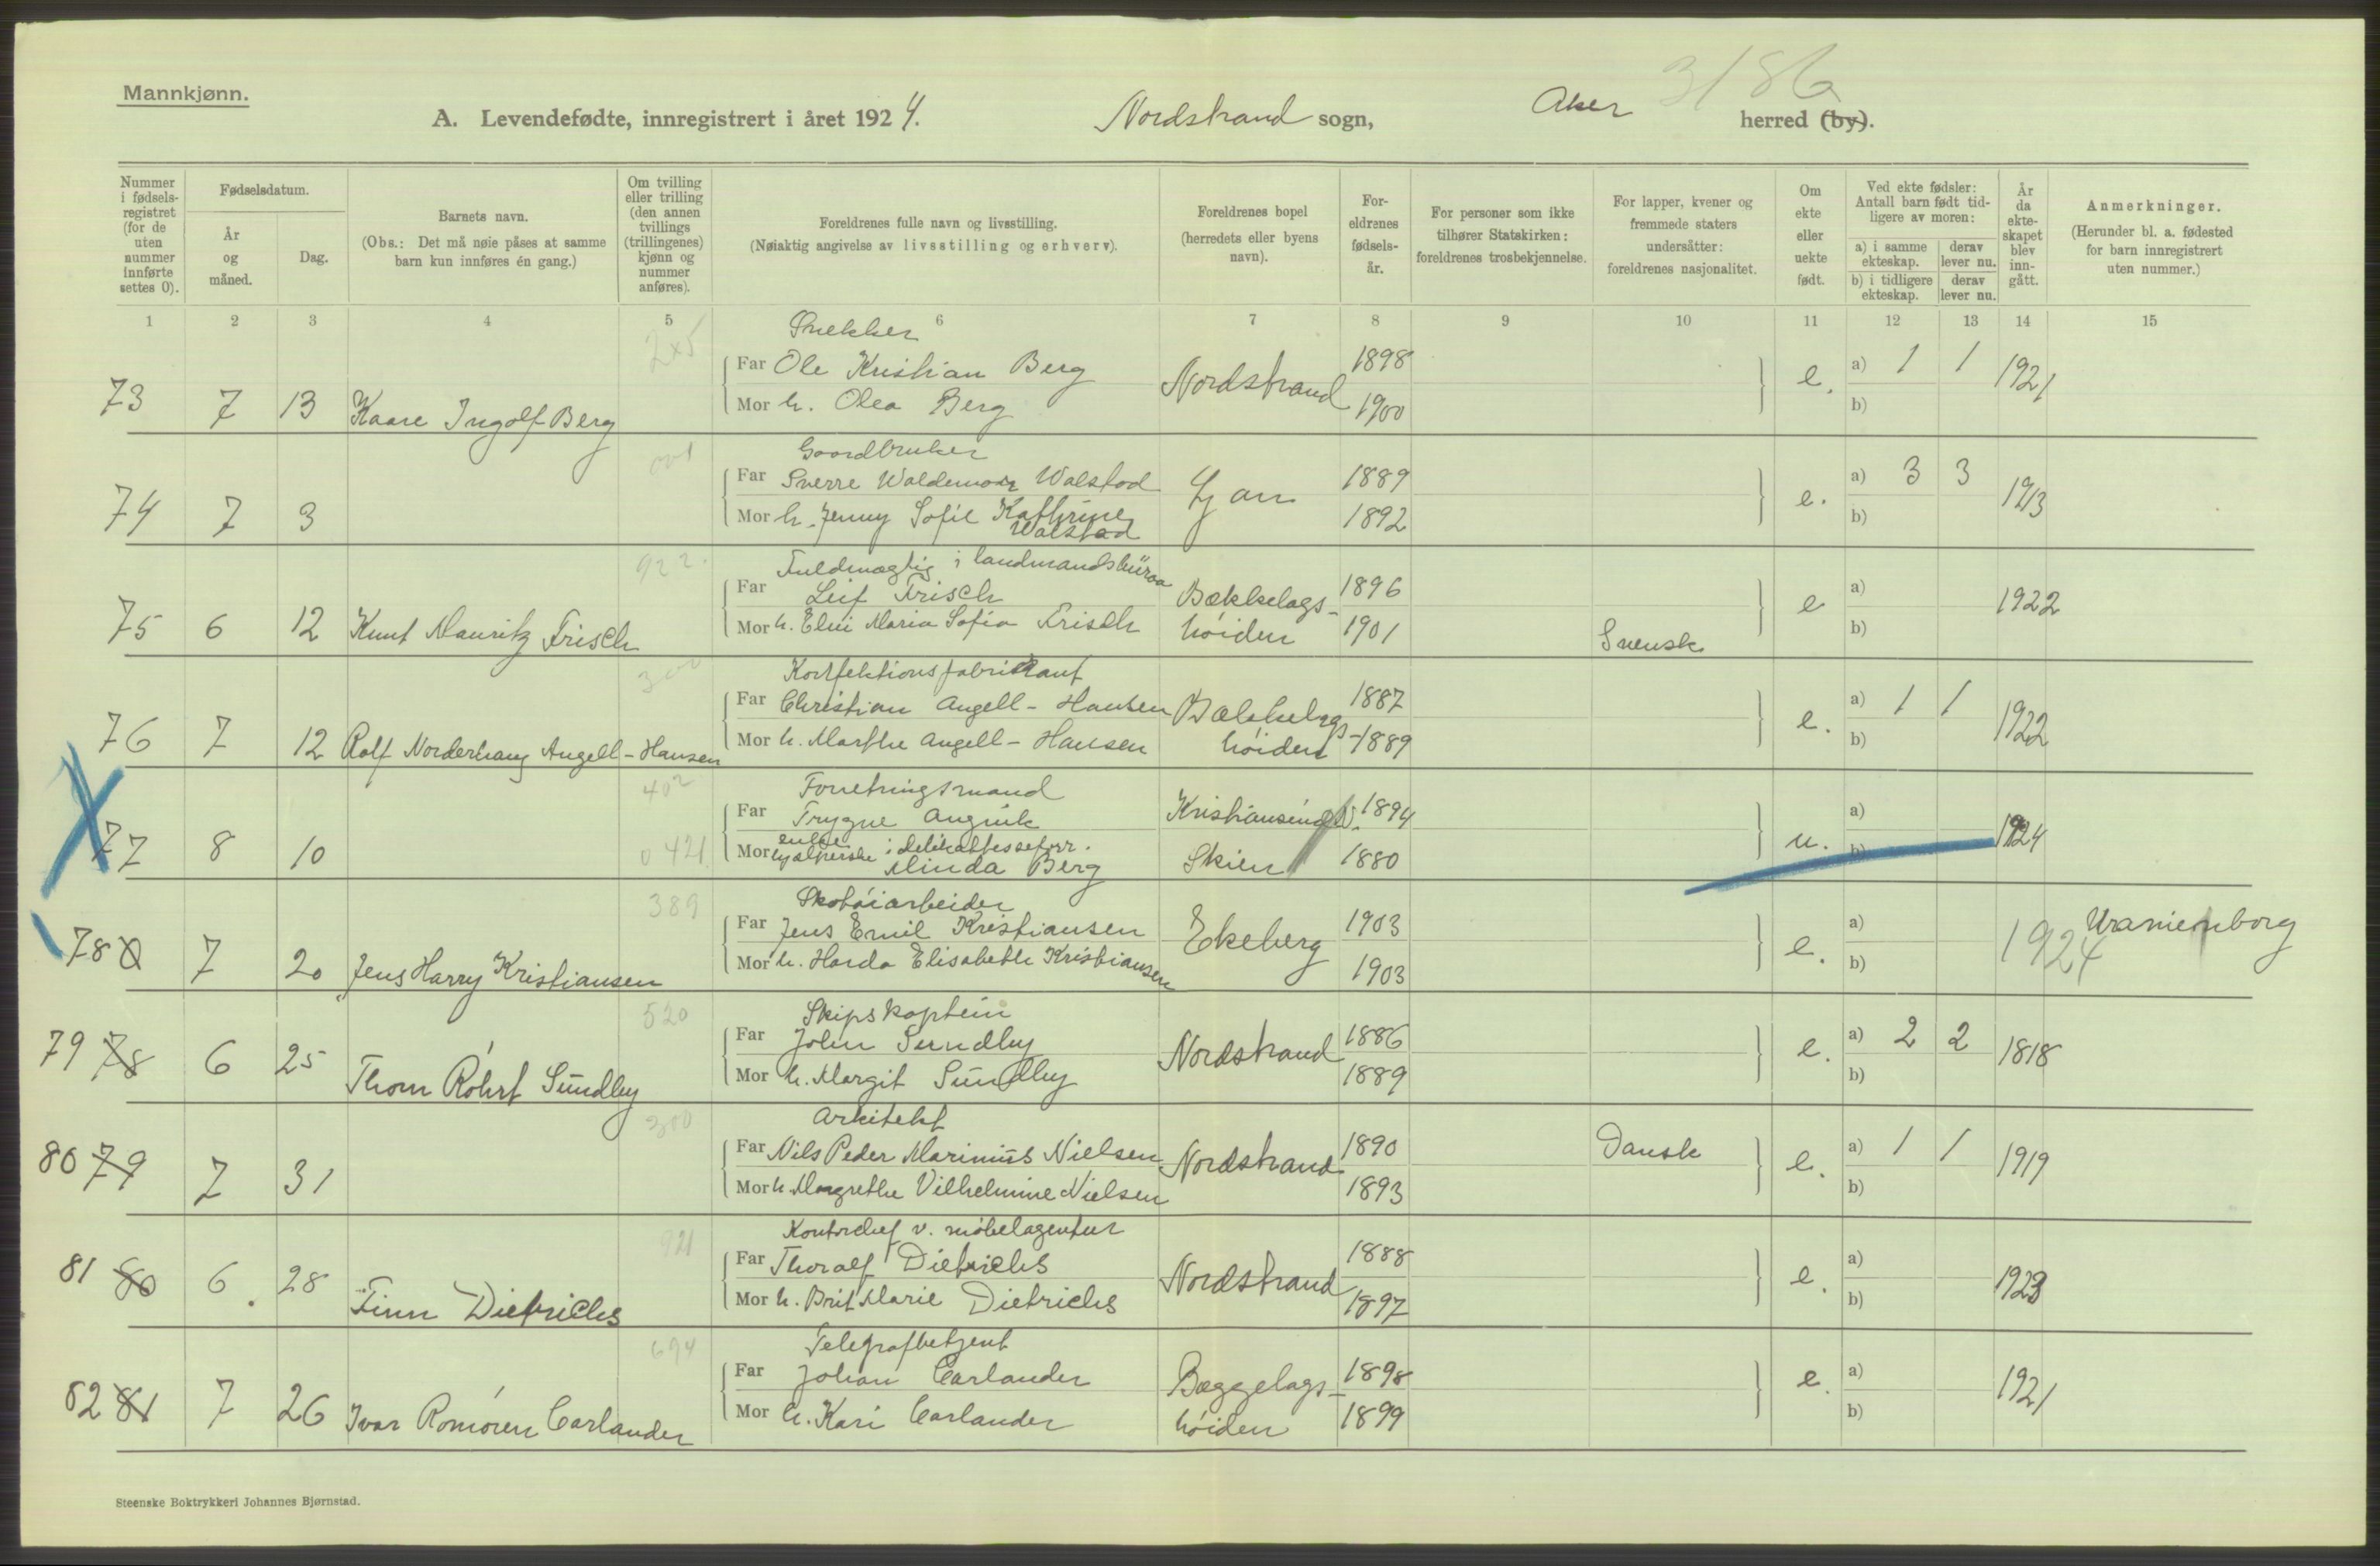 Mannkjønn.
3186
A. Levendefødte, innregistrert i året 1924. Nordstrand sogn, Aker herred (by).
Nummer i fødsels-registret (for de uten nummer innførte settes 0).
Fødselsdatum.
År og måned.
Dag.
Barnets navn.
(Obs.: Det må nøie påses at samme barn kun innføres én gang.)
Om tvilling eller trilling (den annen tvillings (trillingenes) kjønn og nummer anføres).
Foreldrenes fulle navn og livsstilling.
(Nøiaktig angivelse av livsstilling og erhverv).
Foreldrenes bopel (herredets eller byens navn).
For-eldrenes fødsels-år.
For personer som ikke tilhører Statskirken: foreldrenes trosbekjennelse.
For lapper, kvener og fremmede staters undersåtter: foreldrenes nasjonalitet.
Om ekte eller uekte født.
Ved ekte fødsler: Antall barn født tid-ligere av moren:
a) i samme ekteskap. derav lever nu.
b) i tidligere ekteskap. derav lever nu.
År da ekte-skapet blev inn-gått.
Anmerkninger.
(Herunder bl. a. fødested for barn innregistrert uten nummer.)
1 2 3 4 5 6 7 8 9 10 11 12 13 14 15
2x5 Snekker
Far Ole Kristian Berg 1898 a) 1 1
73 7 13 Kaare Ingolf Berg Nordstrand e. 1921
Mor h. Olea Berg 1900 b)
001 Gaardbruker
Far Sverre Waldemar Walstad 1889 a) 3 3
74 7 3 Ljan e. 1913
Mor h. Jenny Sofie Kathrine Walstad 1892 b)
922. Fuldmægtig i landmandsbüroa
Far Leif Frisch 1896 a)
75 6 12 Knut Mauritz Frisch Bækkelags-høiden e 1922
Mor h. Elni Maria Sofia Frisch 1901 Svensk b)
300 Konfektionsfabrikant
Far Christian Angell-Hansen 1887 a) 1 1
76 7 12 Rolf Norderhaug Angell-Hansen Bækkelags-høiden e. 1922
Mor h. Marthe Angell-Hansen 1889 b)
402 Forretningsmand
Far Trygve Angvik Kristiansund N. 1894 a)
77 8 10 u. 1924
0421 Mor i delikatesseforr. Minda Berg Skien 1880 b)
389 Skotøiarbeider
Far Jens Emil Kristiansen 1903 a) Uranienborg
78 0 7 20 Jens Harry Kristiansen Ekeberg e. 1924
Mor h. Harda Elisabeth Kristiansen 1903 b)
520 Skipskaptein
Far John Sundby 1886 a) 2 2
79 78 6 25 Thom Röhrt Sundby Nordstrand e. 1818
Mor h. Margit Sundby 1889 b)
300 Arkitekt
Far Nils Peder Marinius Nielsen 1890 Dansk a) 1 1
80 79 7 31 Nordstrand e. 1919
Mor h. Margrethe Vilhelmine Nielsen 1893 b)
921 Kontorchef v. møbelagentur
Far Thoralf Dietrichs 1888 a)
81 80 6. 28 Finn Dietrichs Nordstrand e. 1923
Mor h. Brit Marie Dietrichs 1897 b)
694 Telegrafbetjent
Far Johan Carlander 1898 a)
82 81 7 26 Ivar Romören Carlander Bæggelags-høiden e. 1921
Mor h. Kari Carlander 1899 b)
Steenske Boktrykkeri Johannes Bjørnstad.